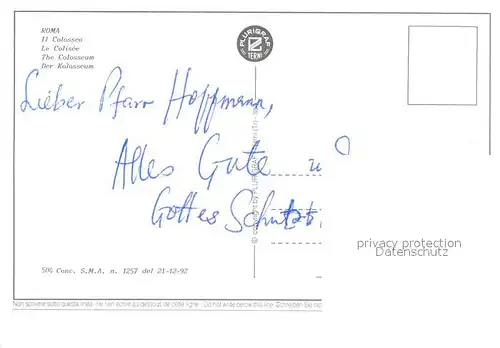 ROMA
Il Colosseo
Le Colisée
The Colosseum
Der Kolosseum
PLURIGRAF
TERNI
Lieber Pfarr Hoffmann,
Alles Gute u
Gottes Schutz
privacy protection
Datenschutz
50% Conc. S.M.A. n. 1257 del 21-12-92
Non scrivere sotto questa linea - ne rien écrire au dessous de cette ligne - Do not write below this line
© copyright by PLURIGRAF